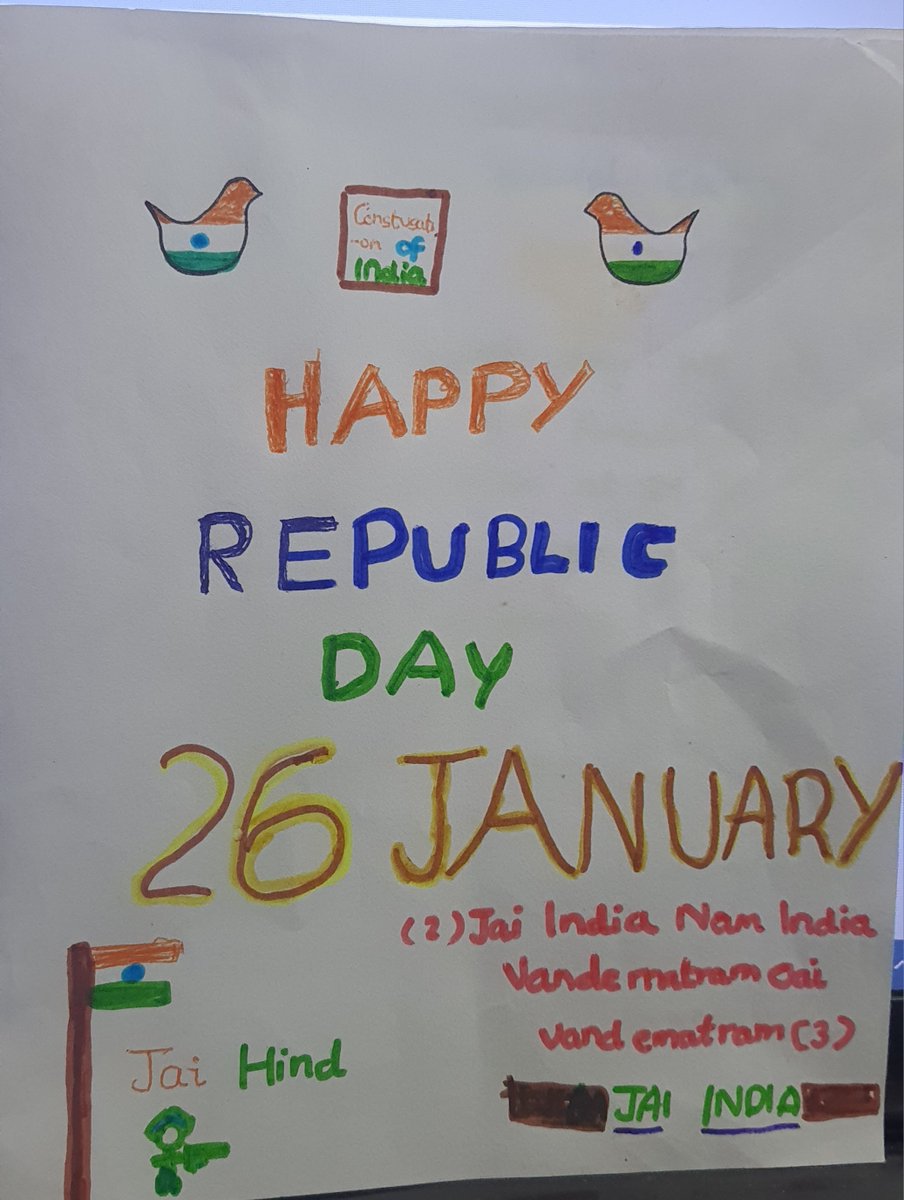 Constusati
-on of
India
HAPPY
REPUBLIC
DAY
26 JANUARY
(2) Jai India Nam India
Vande matram oai
vand ematram (3)
Jai Hind
JAI INDIA